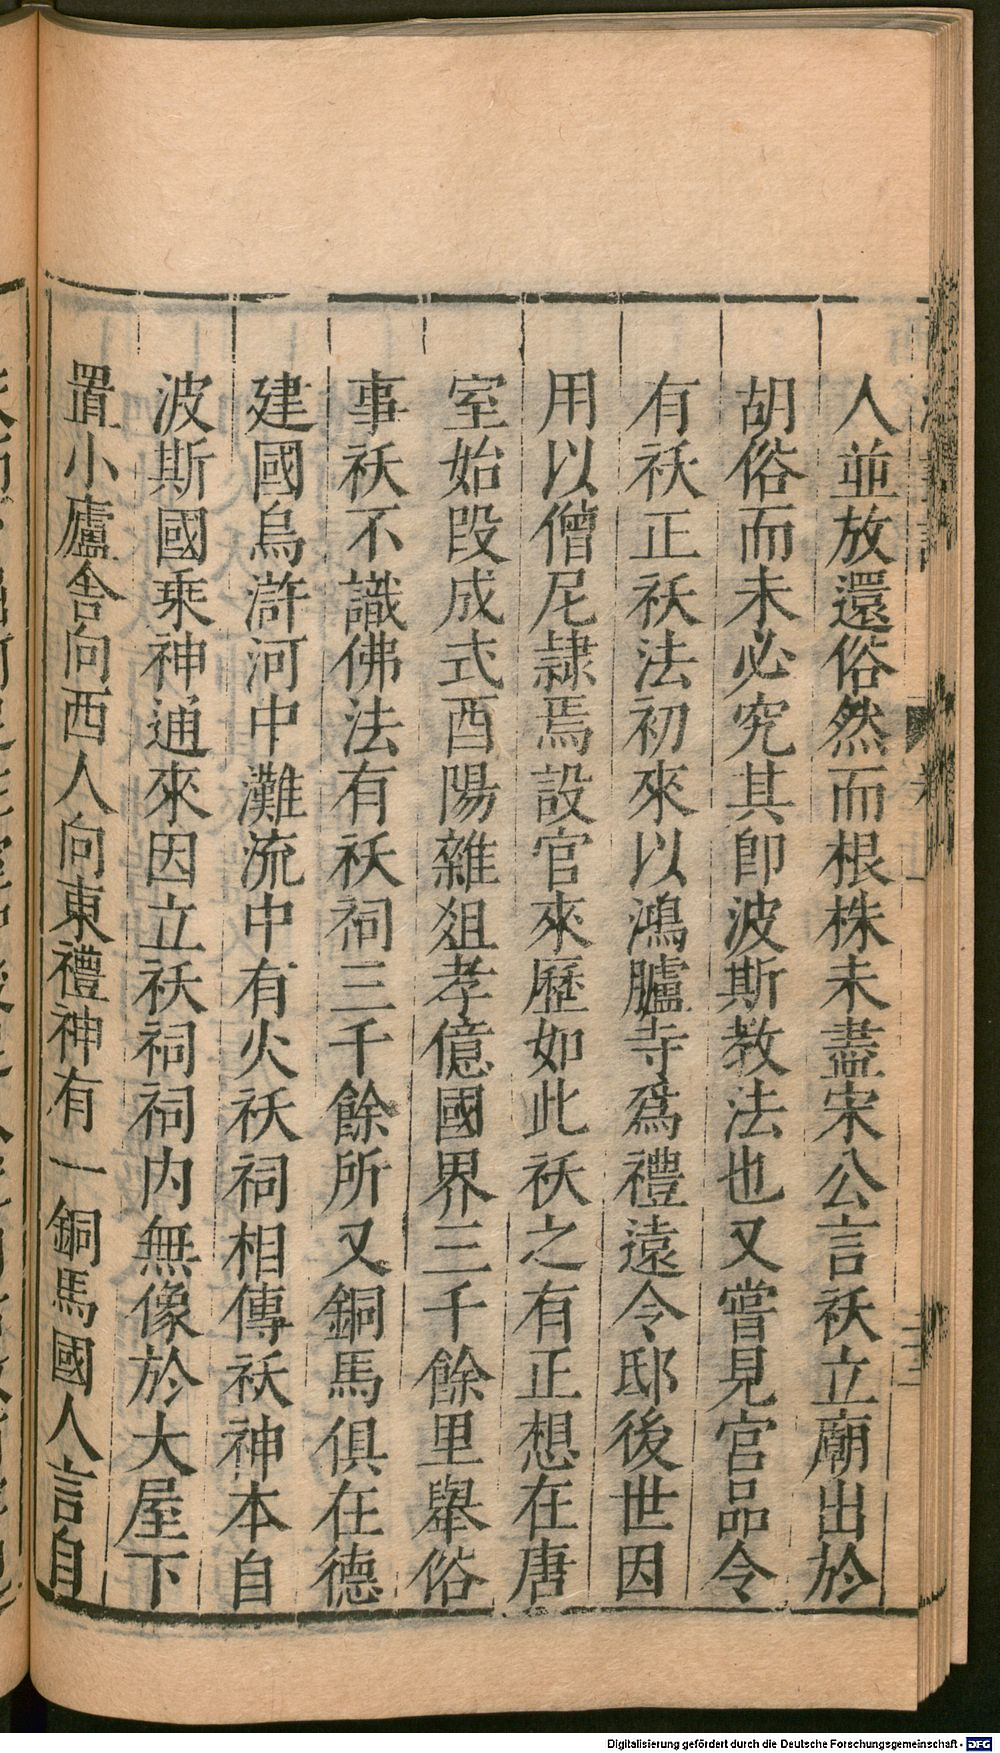 人並放還俗然而根株未盡宋公言祆立廟出於
胡俗而未必究其卽波斯教法也又嘗見官品令
有祆正祆法初來以鴻臚寺爲禮遠令邸後世因
用以僧尼隷焉設官來歷如此祆之有正想在唐
室始段成式酉陽雜俎孝億國界三千餘里舉俗
事祆不識佛法有祆祠三千餘所又銅馬俱在德
建國烏滸河中灘流中有火祆祠相傳祆神本自
波斯國乘神通來因立祆祠祠内無像於大屋下
置小廬舍向西人向東禮神有一銅馬國人言自
Digitalisierung gefördert durch die Deutsche Forschungsgemeinschaft - DFG